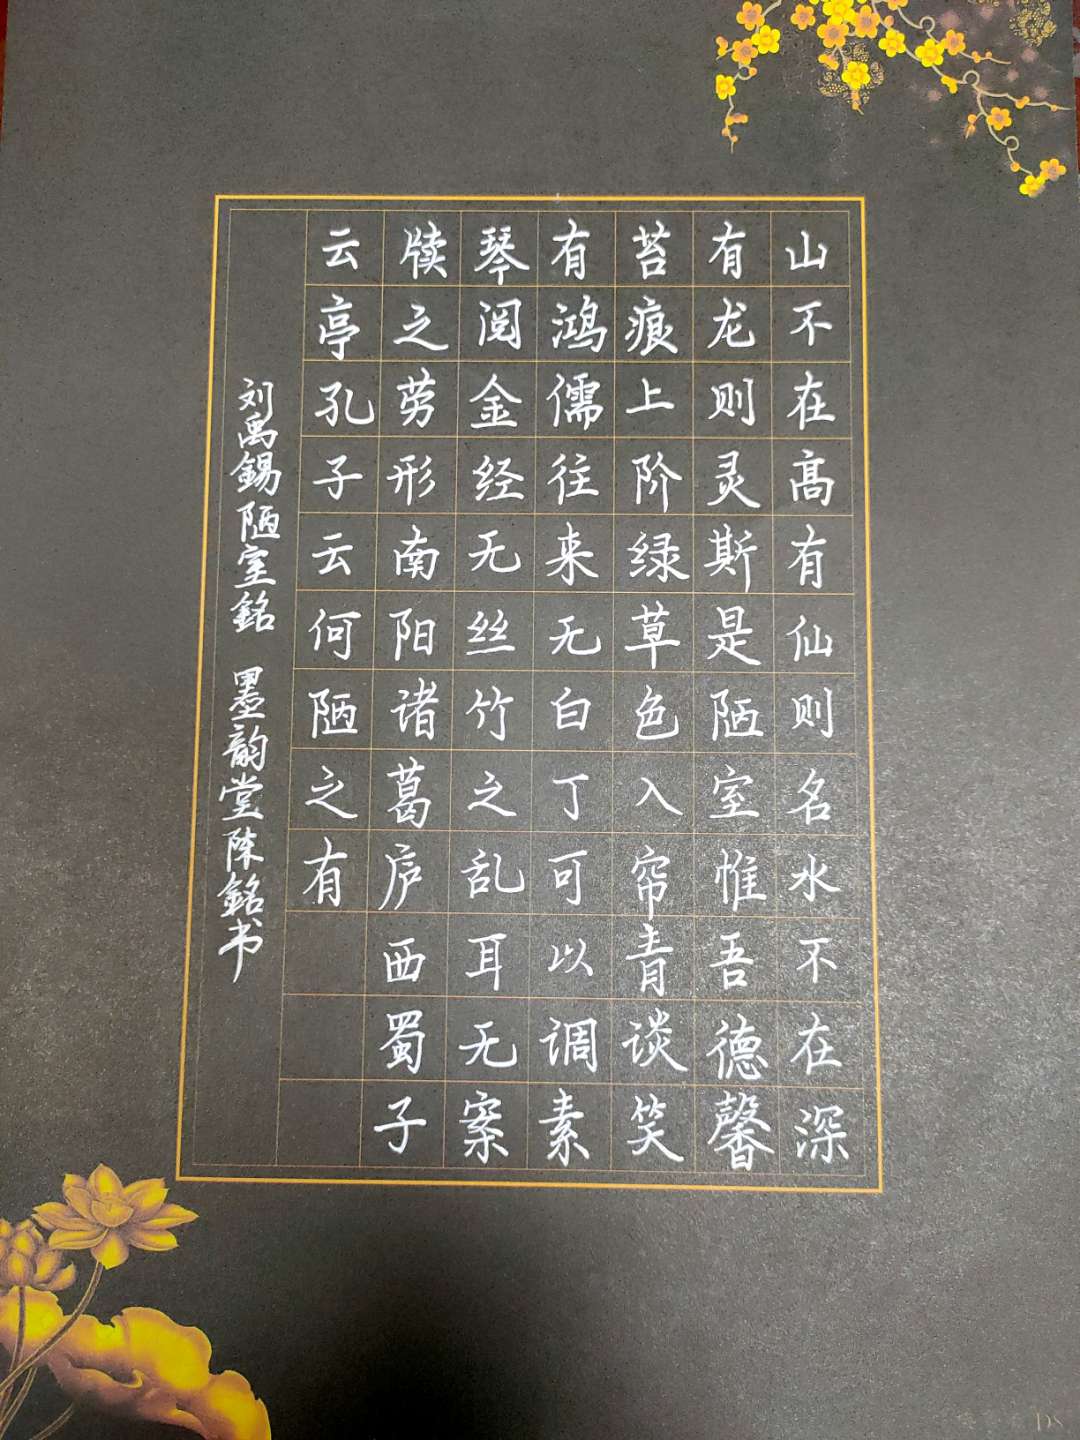 山不在高有仙则名水不在深
有龙则灵斯是陋室惟吾德馨
苔痕上阶绿草色入帘青谈笑
有鸿儒往来无白丁可以调素
琴阅金经无丝竹之乱耳无案
牍之劳形南阳诸葛庐西蜀子
云亭孔子云何陋之有
刘禹錫陋室銘 墨韵堂陈銘书
DS